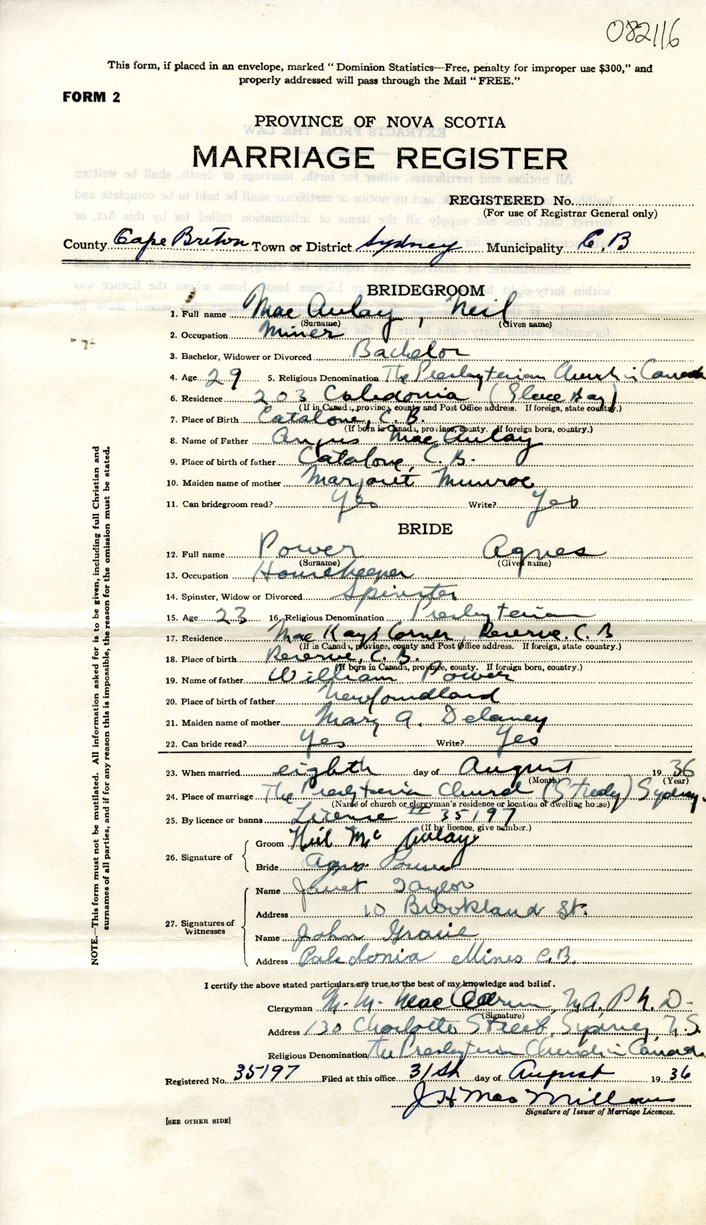 082116
This form, if placed in an envelope, marked "Dominion Statistics—Free, penalty for improper use $300," and
properly addressed will pass through the Mail "FREE."
FORM 2
PROVINCE OF NOVA SCOTIA
MARRIAGE REGISTER
REGISTERED No.
(For use of Registrar General only)
County Cape Breton Town or District Sydney Municipality C.B
BRIDEGROOM
1. Full name Mac Aulay, Neil
(Surname) (Given name)
2. Occupation Miner
3. Bachelor, Widower or Divorced Bachelor
4. Age 29 5. Religious Denomination The Presbyterian Church in Canada
6. Residence 203 Caledonia (Glace Bay)
(If in Canada, province, county and Post Office address. If foreign, state country.)
7. Place of Birth Catalone, C.B.
(If born in Canada, province, county. If foreign born, country.)
8. Name of Father Angus Mac Aulay
9. Place of birth of father Catalone, C.B.
10. Maiden name of mother Margaret Munroe
11. Can bridegroom read? Yes Write? Yes
BRIDE
12. Full name Power Agnes
(Surname) (Given name)
13. Occupation Housekeeper
14. Spinster, Widow or Divorced Spinster
15. Age 23 16. Religious Denomination Presbyterian
17. Residence Mac Kay's Corner, Reserve. C.B
(If in Canada, province, county and Post Office address. If foreign, state country.)
18. Place of birth Reserve, C.B.
(If born in Canada, province, county. If foreign born, country.)
19. Name of father William Power
20. Place of birth of father Newfoundland
21. Maiden name of mother Mary A. Delaney
22. Can bride read? Yes Write? Yes
23. When married eighth day of August 1936
(Month) (Year)
24. Place of marriage The Presbyterian Church (Study) Sydney.
(Name of church or clergyman's residence or location of dwelling house)
25. By licence or banns License # 35197
(If by licence, give number.)
26. Signature of Groom Neil Mc Aulay
Bride Agnes Power
27. Signatures of Witnesses Name Janet Taylor
Address 10 Brookland St.
Name John Gracie
Address Caledonia Mines C.B.
I certify the above stated particulars are true to the best of my knowledge and belief.
Clergyman M.A. Ph.D.
(Signature)
Address 120 Charlotte Street, Sydney, N.S.
Religious Denomination The Presbyterian Church in Canada
Registered No. 35197 Filed at this office 31st day of August 1936
J H Mac
Signature of Issuer of Marriage Licences.
[SEE OTHER SIDE]
NOTE.—This form must not be mutilated. All information asked for is to be given, including full Christian and
surnames of all parties, and if for any reason this is impossible, the reason for the omission must be stated.